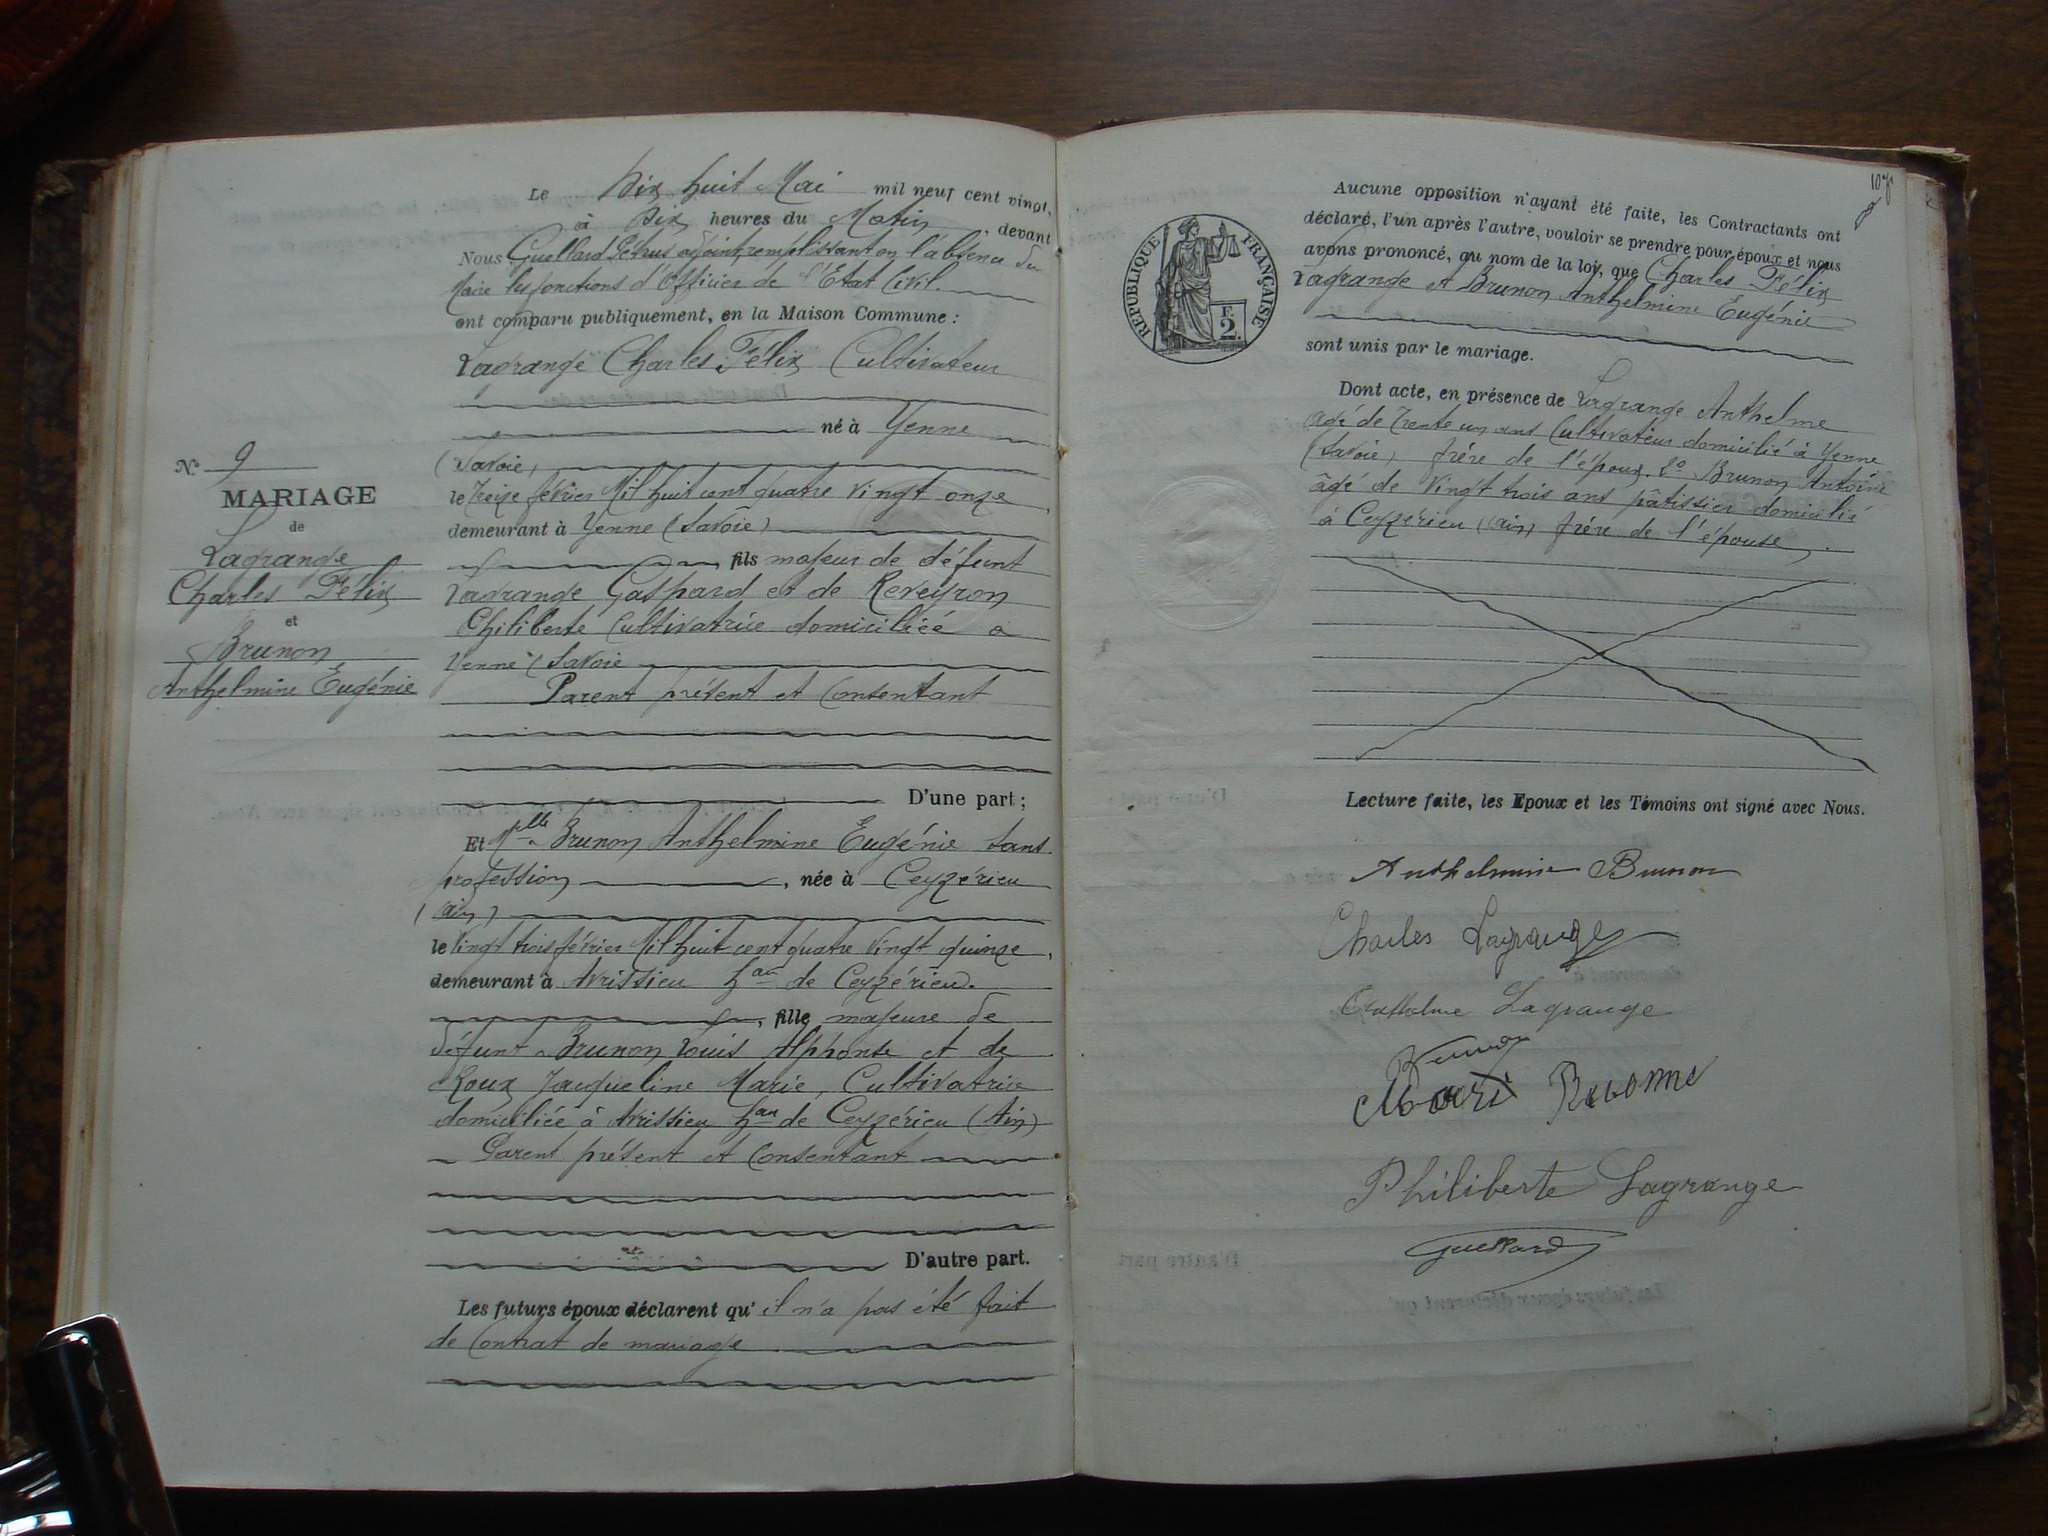 Le Dix huit Mai mil neuf cent vingt,
à Dix heures du Matin, devant
Nous Guellard Pétrus adjoint remplissant en l'absence du
Maire les fonctions d'Officier de l'Etat Civil.
ont comparu publiquement, en la Maison Commune :
Lagrange Charles Félix Cultivateur
né à Yenne
(Savoie)
le Treize février Mil huit cent quatre vingt onze
demeurant à Yenne (Savoie)
fils majeur de défunt
Lagrange Gaspard et de Reveyron
Philiberte Cultivatrice domiciliée à
Yenne (Savoie
Parent présent et Consentant
D'une part ;
N° 9
MARIAGE
de
Lagrange
Charles Félix
et
Brunon
Anthelmine Eugénie
Et Melle Brunon Anthelmine Eugénie Sans
profession, née à Ceyzérieu
(Ain)
le Vingt trois février Mil huit cent quatre Vingt quinze,
demeurant à Avrissieu hau de Ceyzérieu.
, fille majeure de
défunt Brunon Louis Alphonse et de
Roux Jacqueline Marie, Cultivatrice
domiciliée à Avrissieu hau de Ceyzérieu (Ain)
Parent présent et Consentant
D'autre part.
Les futurs époux déclarent qu' il n'a pas été fait
de Contrat de mariage
107
RÉPUBLIQUE FRANÇAISE
F.
2.
Aucune opposition n'ayant été faite, les Contractants ont
déclaré, l'un après l'autre, vouloir se prendre pour époux et nous
avons prononcé, au nom de la loi, que Charles Félix
Lagrange et Brunon Anthelmine Eugénie
sont unis par le mariage.
Dont acte, en présence de Lagrange Anthelme
agé de Trente un ans Cultivateur domicilié à Yenne
(Savoie) frère de l'époux. 2° Brunon Antoine
âgé de Vingt trois ans pâtissier domicilié
à Ceyzérieu (Ain) frère de l'épouse.
Lecture faite, les Epoux et les Témoins ont signé avec Nous.
Anthelmine Brunon
Charles Lagrange
Anthelme Lagrange
Brunon
Philiberte Lagrange
Guellard